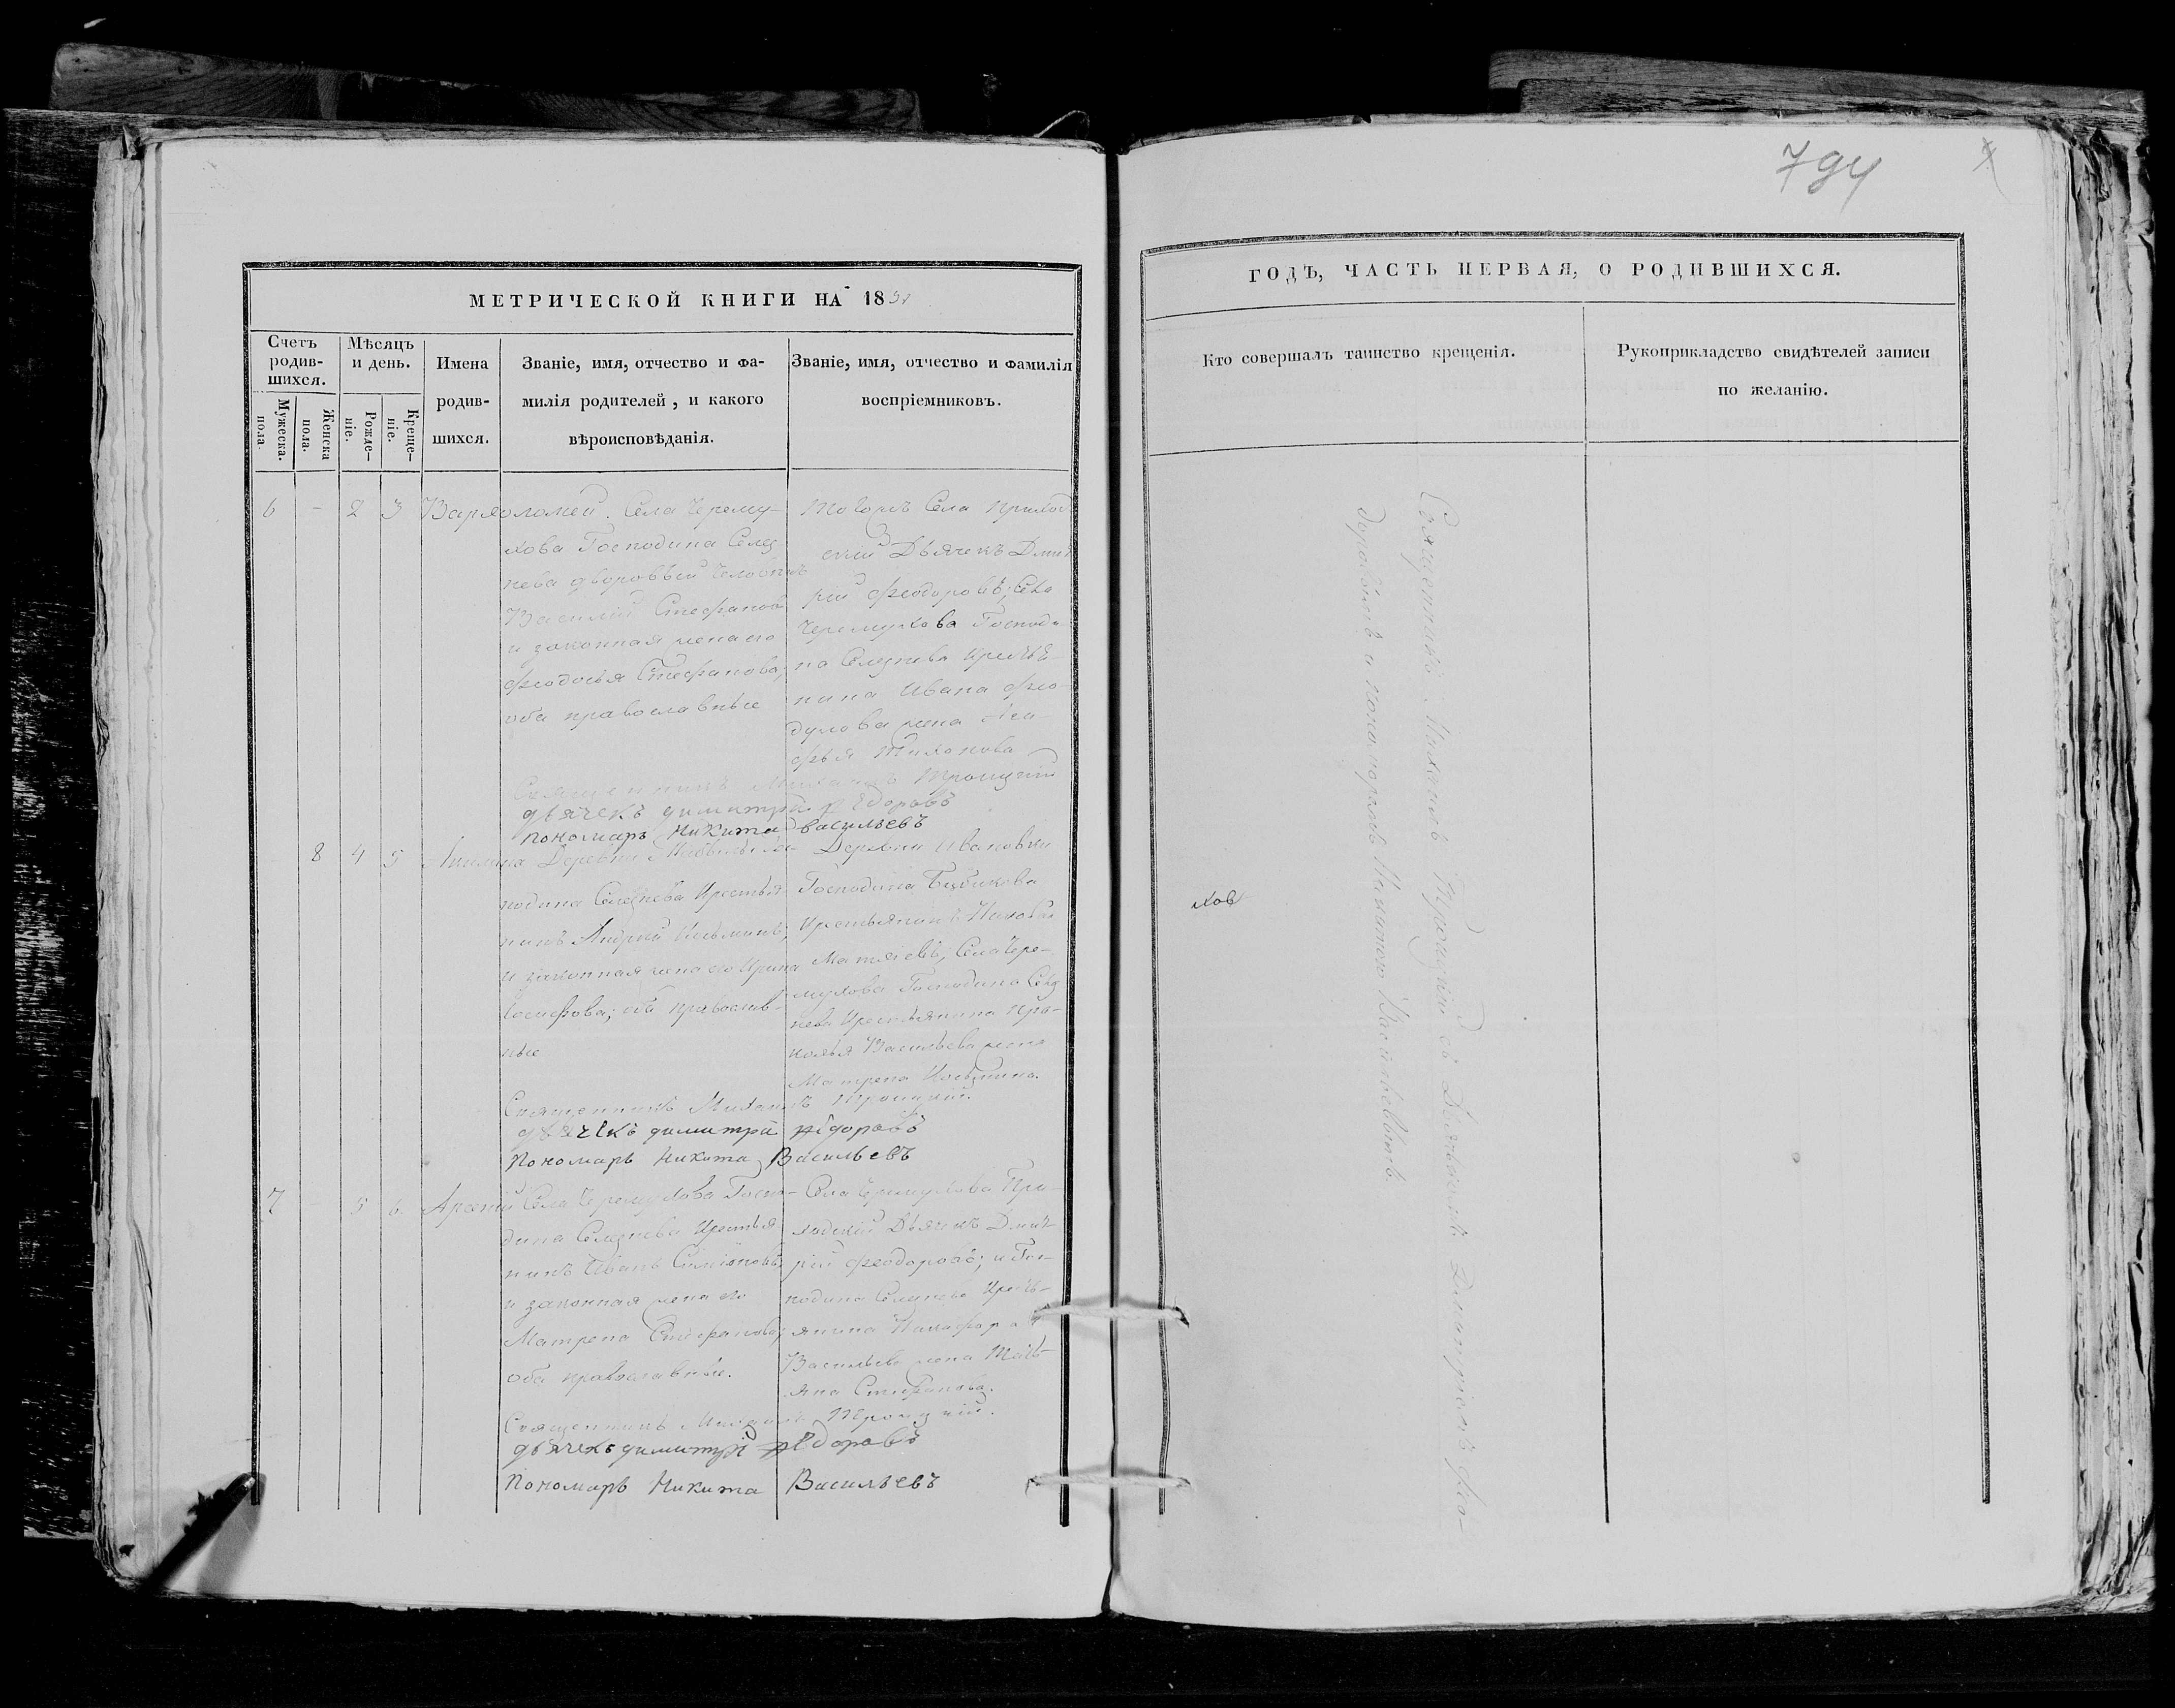 794
МЕТРИЧЕСКОЙ КНИГИ НА 1851
ГОДЪ, ЧАСТЬ ПЕРВАЯ, О РОДИВШИХСЯ.
Счетъ родив-
шихся.
Мужеска. пола.
Женска пола.
Мѣсяцъ
и день.
Рожде-
ніе.
Креще-
ніе.
Имена
родив-
шихся.
Званіе, имя, отчество и фа-
милія родителей, и какого
вѣроисповѣданія.
Званіе, имя, отчество и фамилія
воспріемниковъ.
Кто совершалъ таинство крещенія.
Рукоприкладство свидѣтелей записи
по желанію.
6 - 2 3 Варѳоломей.
Села Черему-
хова Господина Селез
нева дворовый
Василій Стефановъ
и законная жена его
Феодосья Стефанова,
оба православные
Тогожъ Села приход
скій Дьячекъ Дмит
рій Феодоровъ; Села
Черемухова Господи-
на Селезнева
нина Ивана Фео-
дулова жена Ага-
фья Тихонова
Священникъ Михаилъ Троицкій
дьячекъ димитрій Федоровъ
Пономарь Никита Васильевъ
8 4 5 Акилина
Деревни Гос-
подина Селезнева Крестья-
нинъ Андрей Козьминъ,
и законная жена его Ирина
Іосифова; оба православ-
ные
Деревни Ивановки
Господина Бибикова
Крестьянинъ
Матвіевъ, Села Чере-
мухова Господина Селез
нева Крестьянина Про-
копья Васильева жена
Матрена Козьмина.
Священникъ Михаилъ Троицкій.
дьячекъ димитрій Федоровъ
Пономарь Никита Васильевъ
7 - 5 6 Арсеній
Села Черемухова Госпо-
дина Селезнева Крестья
нинъ Иванъ Симіоновъ,
и законная жена его
Матрена Стефанова;
оба православные.
Села Черемухова При-
ходскій Дьячекъ Дмит
рій Феодоровъ; и Гос-
подина Селезнева Кресть-
янина Никифора
Васильева жена Тать-
яна Стефанова.
Священникъ Михаилъ Троицкій.
дьячекъ димитрі Федоровъ
Пономарь Никита Васильевъ
Священникъ Михаилъ Троицкій съ Дьячкомъ Димитріемъ Ѳео-
доровымъ и пономаремъ Никитою Васильевымъ.
хов